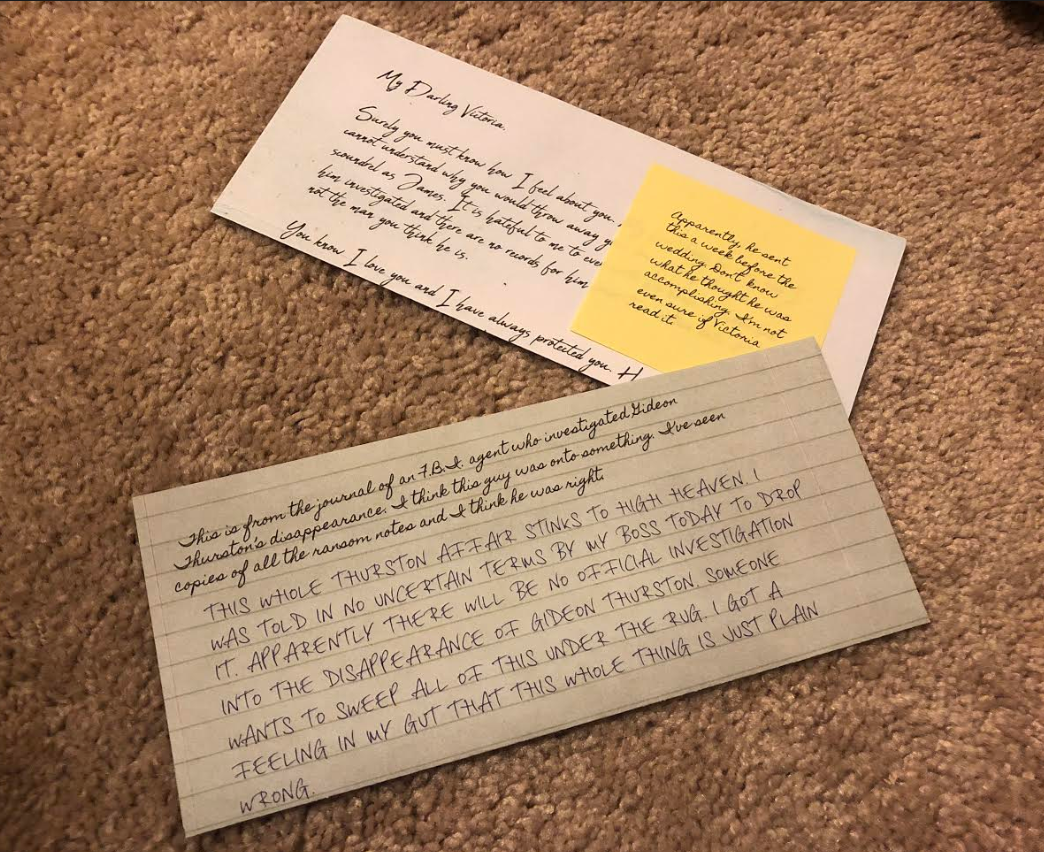 My Darling Victoria,
Surely you must know how I feel about you.
cannot understand why you would throw away
scoundrel as James. It is hateful to me to ever
him investigated and there are no records for him
not the man you think he is.
You know I love you and I have always protected you. H
Apparently, he sent
this a week before the
wedding. Don't know
what he thought he was
accomplishing. I'm not
even sure if Victoria
read it.
This is from the journal of an F.B.I. agent who investigated Gideon
Thurston's disappearance. I think this guy was onto something. I've seen
copies of all the ransom notes and I think he was right.
THIS WHOLE THURSTON AFFAIR STINKS TO HIGH HEAVEN. I
WAS TOLD IN NO UNCERTAIN TERMS BY MY BOSS TODAY TO DROP
IT. APPARENTLY THERE WILL BE NO OFFICIAL INVESTIGATION
INTO THE DISAPPEARANCE OF GIDEON THURSTON. SOMEONE
WANTS TO SWEEP ALL OF THIS UNDER THE RUG. I GOT A
FEELING IN MY GUT THAT THIS WHOLE THING IS JUST PLAIN
WRONG.